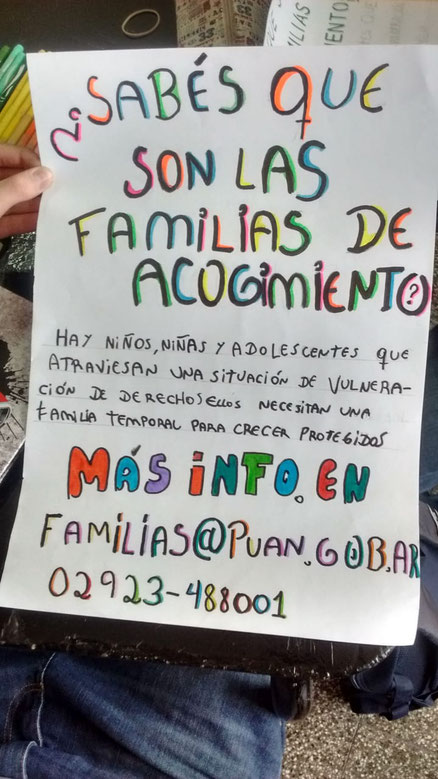 ¿SABÉS QUE
SON LAS
FAMILIAS DE
ACOGIMIENTO?
HAY NIÑOS, NIÑAS Y ADOLESCENTES QUE
ATRAVIESAN UNA SITUACIÓN DE VULNERA-
CIÓN DE DERECHOS ELLOS NECESITAN UNA
FAMILIA TEMPORAL PARA CRECER PROTEGIDOS
MÁS INFO. EN
FAMILIAS@PUAN.GOB.AR
02923-488001